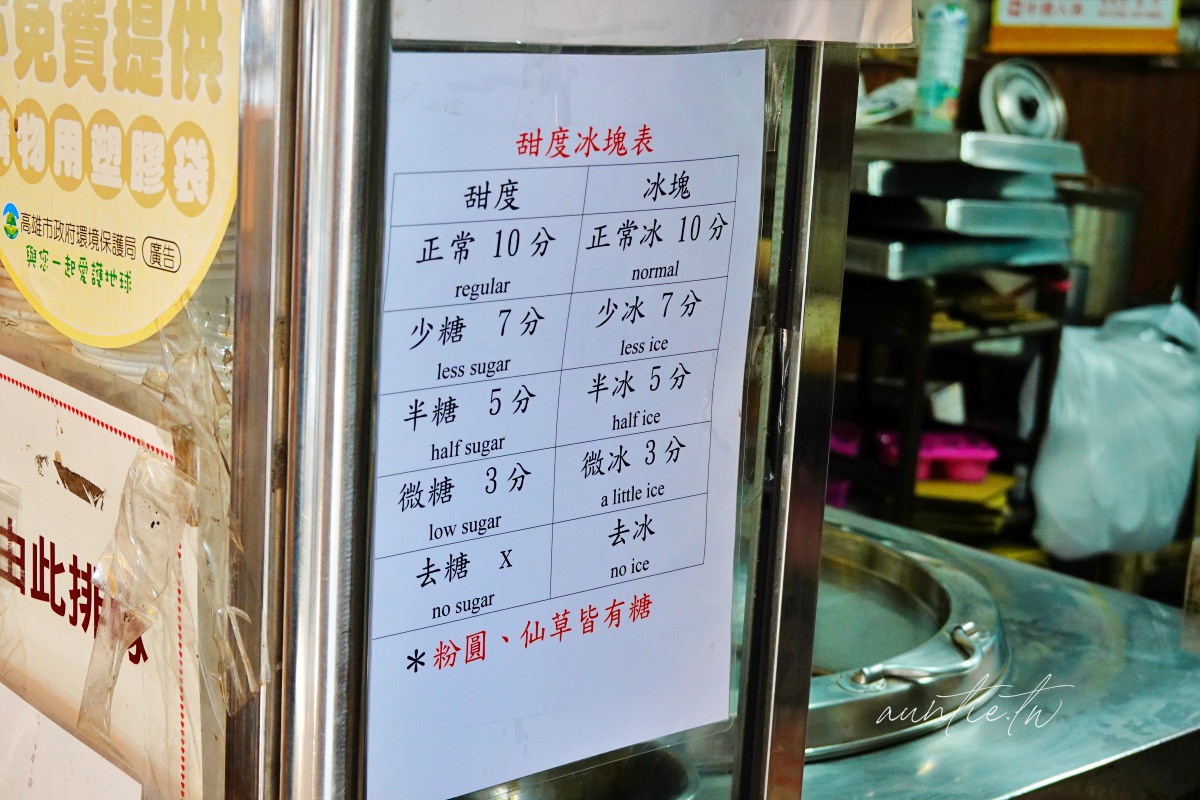 免費提供
購物用塑膠袋
高雄市政府環境保護局 廣告
與您一起愛護地球
由此排隊
甜度冰塊表
甜度 冰塊
正常 10分 正常冰 10分
regular normal
少糖 7分 少冰 7分
less sugar less ice
半糖 5分 半冰 5分
half sugar half ice
微糖 3分 微冰 3分
low sugar a little ice
去糖 x 去冰
no sugar no ice
*粉圓、仙草皆有糖
auntie.tw